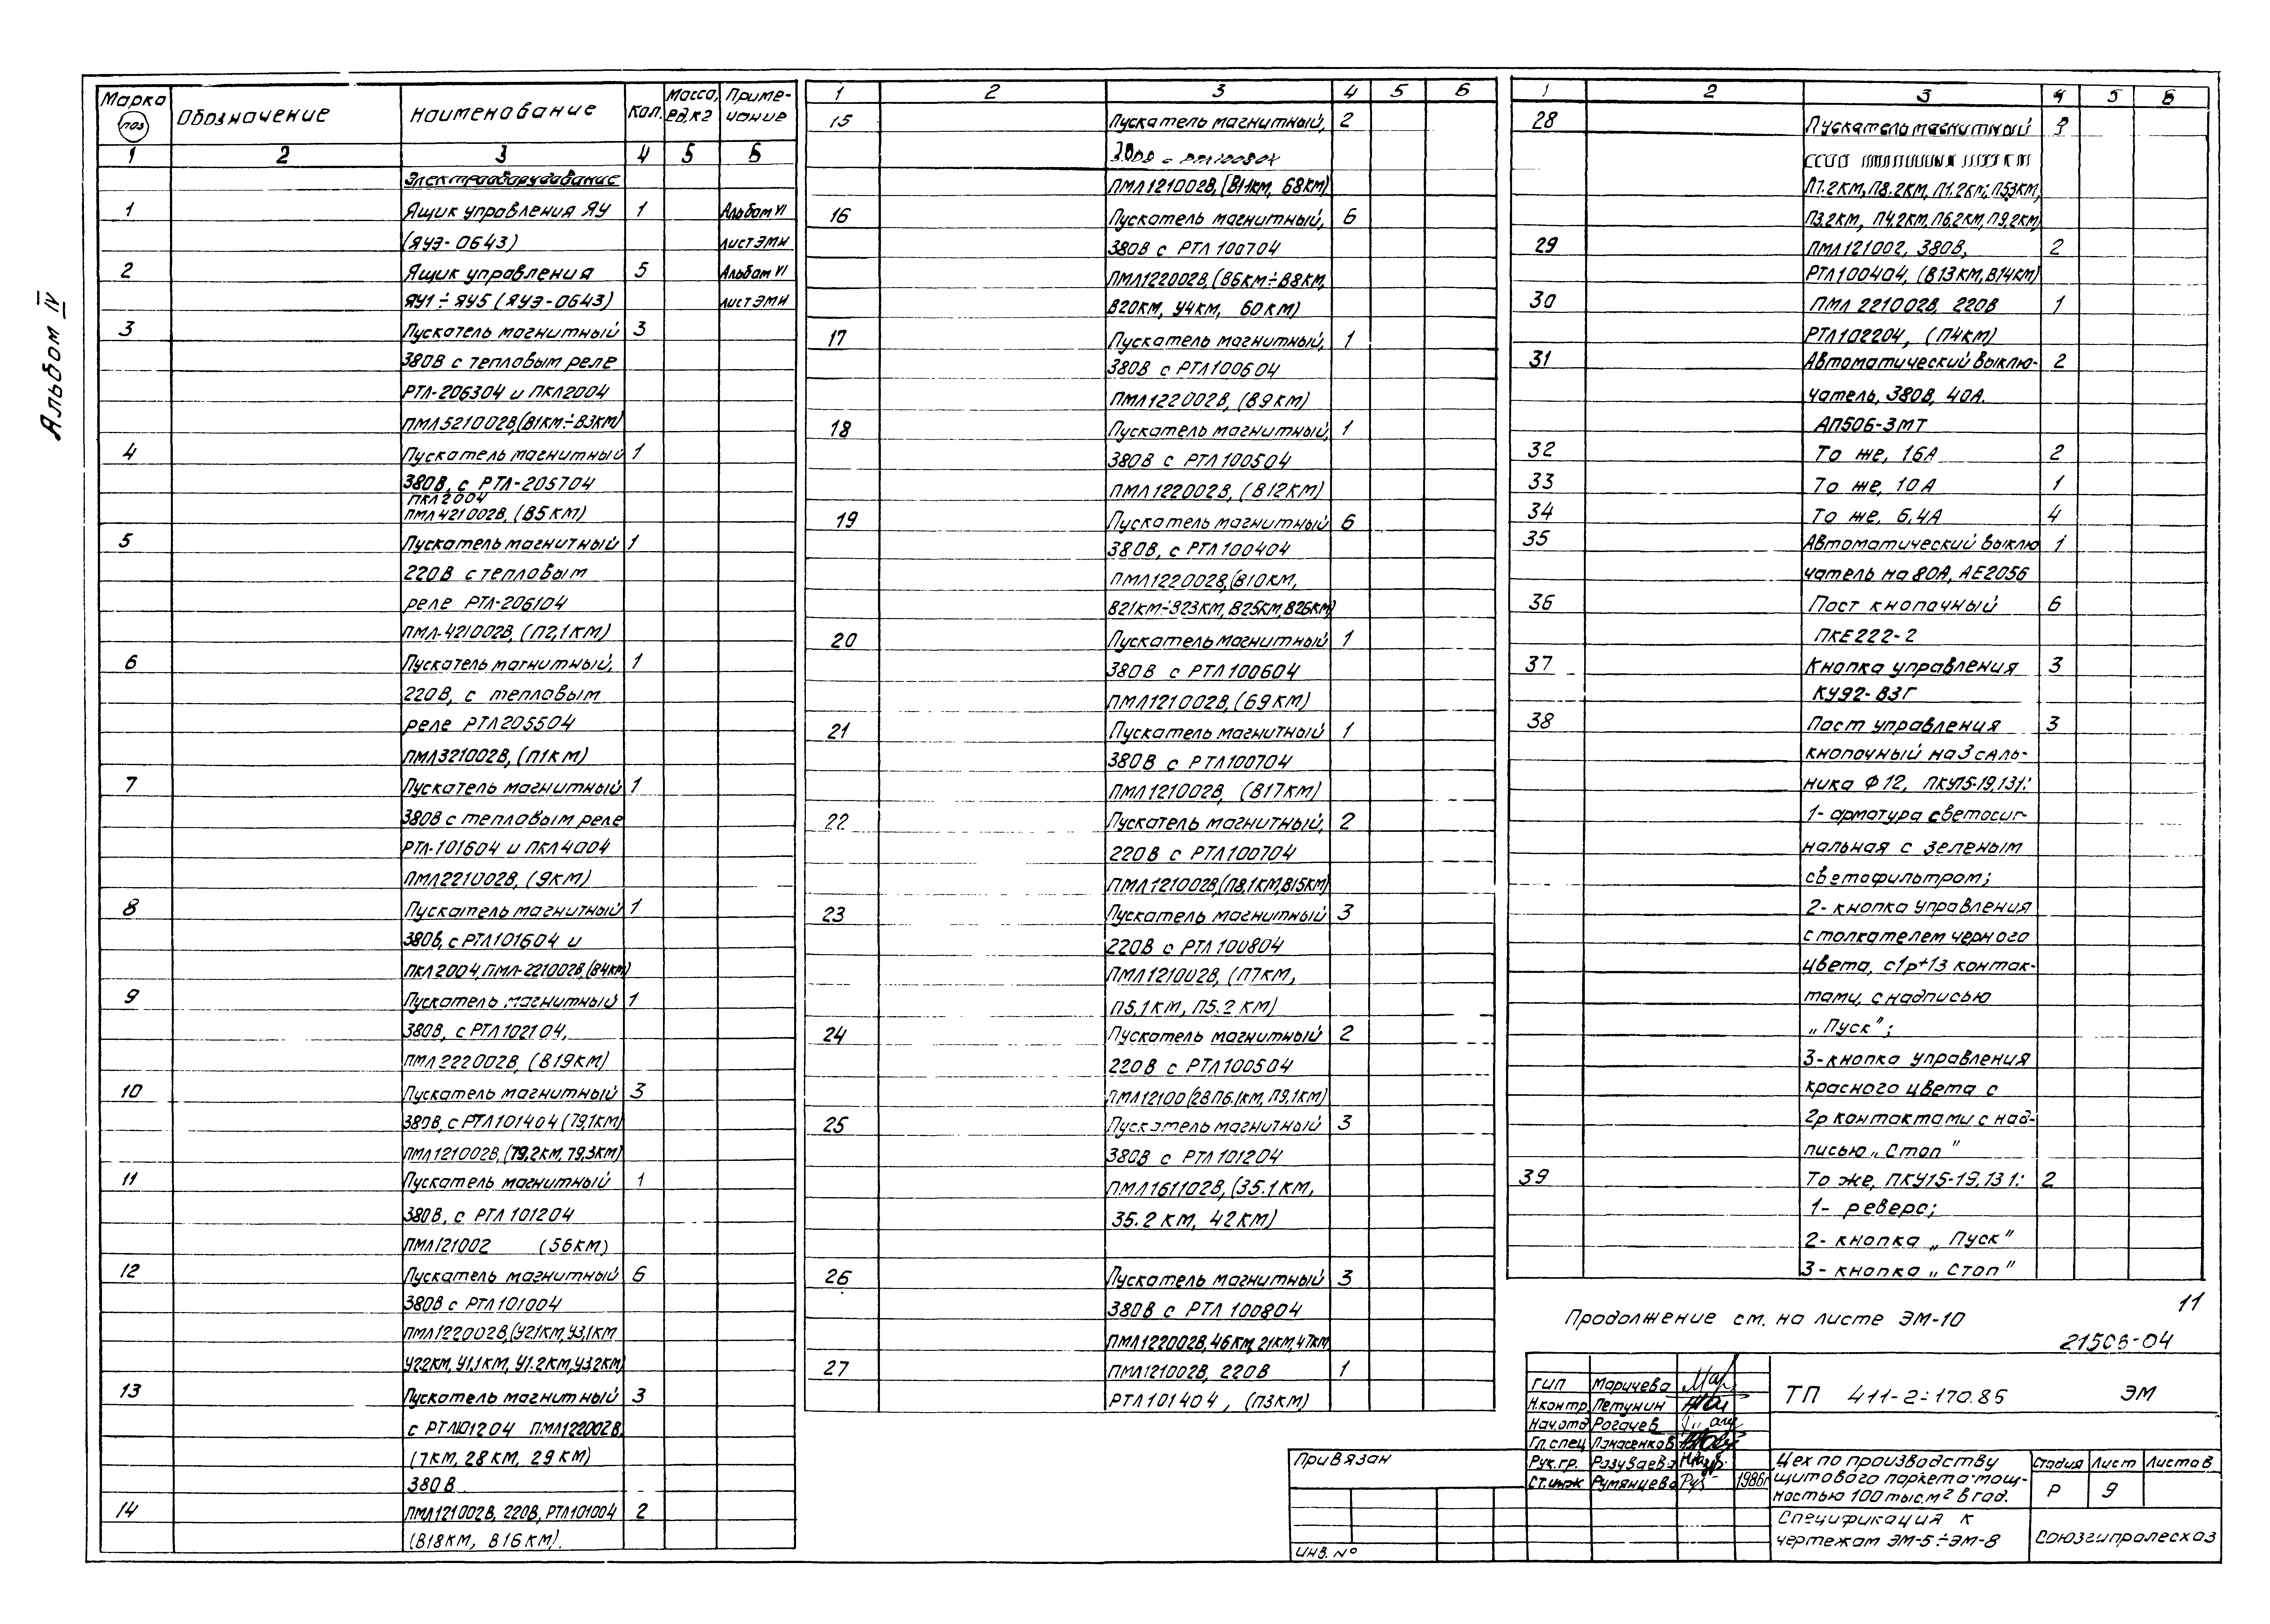 Альбом IV
Марка поз Обозначение Наименование Кол. Масса, ед, кг Приме-чание
1 2 3 4 5 6
Электрооборудование
1 Ящик управления ЯУ 1 Альбом VI
(ЯУЭ-0643) лист ЭМИ
2 Ящик управления 5 Альбом VI
ЯУ1÷ЯУ5 (ЯУЭ-0643) лист ЭМИ
3 Пускатель магнитный 3
380В с тепловым реле
РТЛ-206304 и ПКЛ2004
ПМЛ521002В,(В1КМ÷В3КМ)
4 Пускатель магнитный 1
380В, с РТЛ-205704
ПКЛ2004
ПМЛ421002В, (В5КМ)
5 Пускатель магнитный 1
220В с тепловым
реле РТЛ-206104
ПМЛ-421002В, (П2,1КМ)
6 Пускатель магнитный, 1
220В, с тепловым
реле РТЛ205504
ПМЛ321002В, (П1КМ)
7 Пускатель магнитный 1
380В с тепловым реле
РТЛ-101604 и ПКЛ4004
ПМЛ221002В, (9КМ)
8 Пускатель магнитный 1
380В, с РТЛ101604 и
ПКЛ2004, ПМЛ-221002В, (84КМ)
9 Пускатель магнитный 1
380В, с РТЛ102104,
ПМЛ222002В, (В19КМ)
10 Пускатель магнитный 3
380В, с РТЛ101404 (79,1КМ)
ПМЛ121002В, (79,2КМ, 79,3КМ)
11 Пускатель магнитный 1
380В, с РТЛ101204
ПМЛ121002 (56КМ)
12 Пускатель магнитный 6
380В с РТЛ101004
ПМЛ122002В,(У2.1КМ,У3,1КМ
У2.2КМ, У1.1КМ, У1.2КМ,У3.2КМ)
13 Пускатель магнитный 3
с РТЛ101204 ПМЛ122002В,
(7КМ, 28КМ, 29КМ)
380В
14 ПМЛ121002В, 220В, РТЛ101004 2
(В18КМ, В16КМ).
1 2 3 4 5 6
15 Пускатель магнитный, 2
ПМЛ121002В, (В11КМ, 68КМ)
16 Пускатель магнитный, 6
380В с РТЛ100704
ПМЛ122002В, (В6КМ÷В8КМ,
В20КМ, У4КМ, 60КМ)
17 Пускатель магнитный, 1
380В с РТЛ100604
ПМЛ122002В, (В9КМ)
18 Пускатель магнитный, 1
380В с РТЛ100504
ПМЛ122002В, (В12КМ)
19 Пускатель магнитный 6
380В, с РТЛ100404
ПМЛ122002В,(В10КМ,
В21КМ÷В23КМ, В25КМ,В26КМ)
20 Пускатель магнитный 1
380В с РТЛ100604
ПМЛ121002В, (69КМ)
21 Пускатель магнитный 1
380В с РТЛ100704
ПМЛ121002В, (В17КМ)
22 Пускатель магнитный, 2
220В с РТЛ100704
ПМЛ121002В,(П8,1КМ,В15КМ)
23 Пускатель магнитный 3
220В с РТЛ100804
ПМЛ121002В, (П7КМ,
П5,1КМ, П5.2КМ)
24 Пускатель магнитный 2
220В с РТЛ100504
ПМЛ12100(2ВП6.1КМ, П9,1КМ)
25 Пускатель магнитный 3
380В с РТЛ101204
ПМЛ161102В, (35.1КМ,
35.2КМ, 42КМ)
26 Пускатель магнитный 3
380В с РТЛ100804
ПМЛ122002В, 46КМ, 21КМ, 47КМ
27 ПМЛ121002В, 220В 1
РТЛ101404, (П3КМ)
1 2 3 4 5 6
28 Пускатель магнитный
П7.2КМ, П8.2КМ, П1.2КМ; П5.3КМ,
П3.2КМ, П4.2КМ, П6.2КМ, П9,2КМ,
29 ПМЛ121002, 380В, 2
РТЛ100404, (В13КМ, В14КМ)
30 ПМЛ221002В, 220В 1
РТЛ102204, (П4КМ)
31 Автоматический выклю- 2
чатель, 380В, 40А.
АП50Б-3МТ
32 То же, 16А 2
33 То же, 10А 1
34 То же, 6,4А 4
35 Автоматический выклю 1
чатель на 80А, АЕ2056
36 Пост кнопочный 6
ПКЕ222-2
37 Кнопка управления 3
КУ92-ВЗГ
38 Пост управления 3
кнопочный на 3 саль-
ника Ф12, ПКУ15-19,131:
1- арматура светосиг-
нальная с зеленым
светофильтром;
2- кнопка управления
с толкателем черного
цвета, с1р+13 контак-
тами, с надписью
„Пуск";
3- кнопка управления
красного цвета с
2р контактами с над-
писью „Стоп"
39 То же, ПКУ15-19.131: 2
1- реверс;
2- кнопка „Пуск"
3- кнопка „Стоп"
Продолжение см. на листе ЭМ-10
11
21508-04
ГИП Маричева
Н.контр Петунин
Нач.отд Рогачев
Гл.спец Панасенков
Рук.гр. Разуваева
Ст.инж Румянцева 1986г
ТП 411-2-170.85 ЭМ
Привязан
Инв. №
Цех по производству
щитового паркета мощ-
ностью 100 тыс. м² в год.
Стадия Лист Листов
Р 9
Спецификация к
чертежам ЭМ-5÷ЭМ-8
Союзгипролесхоз